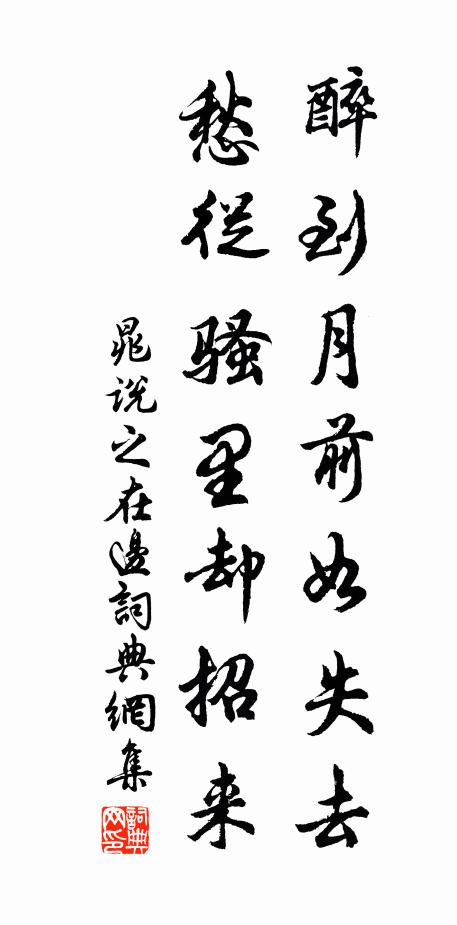 醉到月前如失去
愁從騷里却招来
晁説之在邊詞典網集
詞典網印